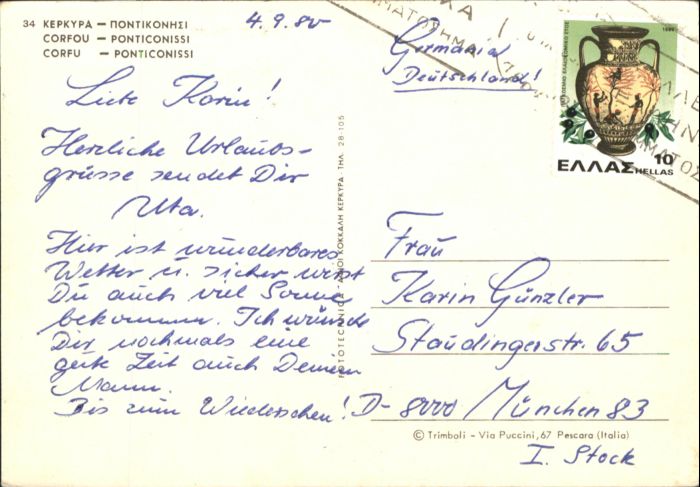 34 ΚΕΡΚΥΡΑ — ΠΟΝΤΙΚΟΝΗΣΙ
CORFOU — PONTICONISSI
CORFU — PONTICONISSI
4.9.80
Liebe Karin!
Herzliche Urlaubs-
grüsse sendet Dir
Uta.
Hier ist wunderbares
Wetter u. sicher wirst
Du auch viel Sonne
bekommen. Ich wünsche
Dir nochmals eine
gute Zeit auch Deinem
Mann.
Bis zum Wiedersehen!
ΚΕΡΚΥΡΑ ΤΗΛ. 28-105
Germania
Deutschland!
1980
ΕΛΛΑΣ 10
HELLAS
Frau
Karin Günzler
Staudingerstr. 65
D-8000 München 83
© Trimboli - Via Puccini, 67 Pescara (Italia)
I. Stock